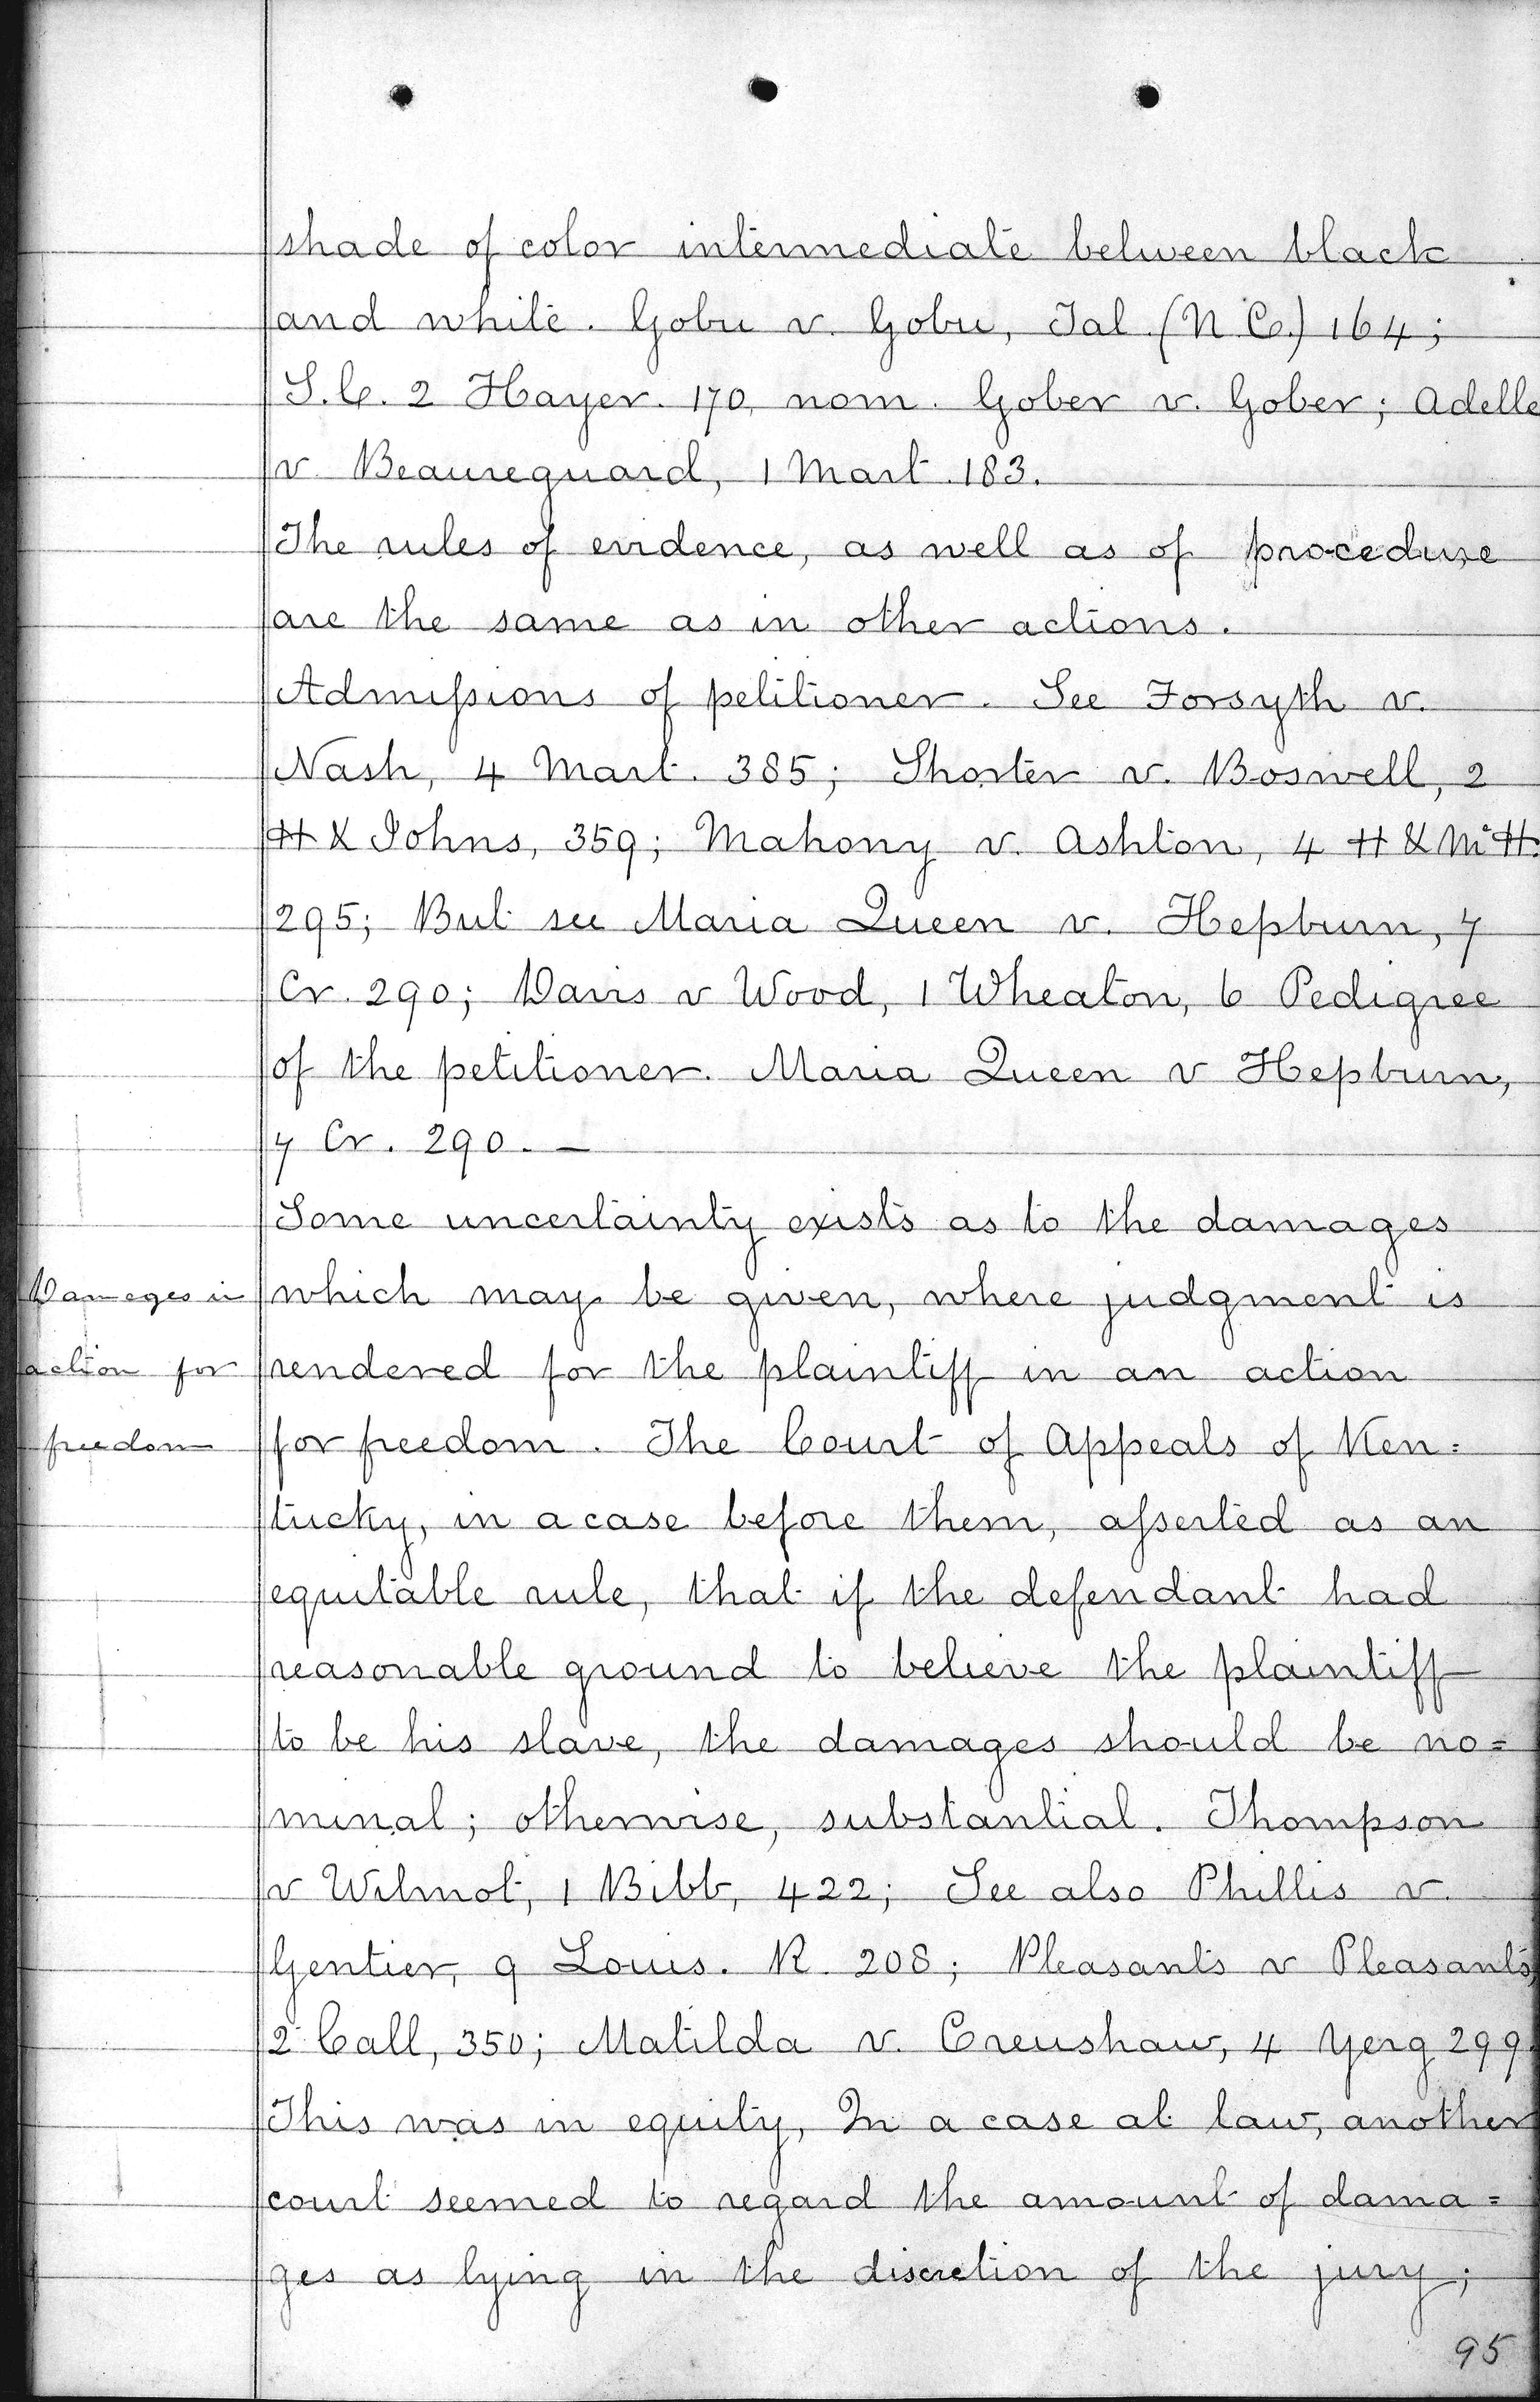 shade of color intermediate between black
and white. Gobu v. Gobu, Tal. (N.C.) 164;
S.C. 2 Hayer. 170, nom. Gober v. Gober; Adelle
v. Beaureguard, 1 Mart. 183.
The rules of evidence, as well as of procedure
are the same as in other actions.
Admiſsions of petitioner. See Forsyth v.
Nash, 4 Mart. 385; Shorter v. Boswell, 2
H & Johns, 359; Mahony v. Ashton, 4 H & McH.
295; But see Maria Queen v. Hepburn, 7
Cr. 290; Davis v Wood, 1 Wheaton, 6 Pedigree
of the petitioner. Maria Queen v Hepburn,
7 Cr. 290. —
Some uncertainty exists as to the damages
Dameges in
action for
freedom
which may be given, where judgment is
rendered for the plaintiff in an action
for freedom. The Court of Appeals of Ken=
tucky, in a case before them, aſserted as an
equitable rule, that if the defendant had
reasonable ground to believe the plaintiff
to be his slave, the damages should be no=
minal; otherwise, substantial. Thompson
v Wilmot, 1 Bibb, 422; See also Phillis v.
Gentier, 9 Louis. R. 208; Pleasants v Pleasants,
2 Call, 350; Matilda v. Creushaw, 4 Yerg 299.
This was in equity, In a case at law, another
court seemed to regard the amount of dama=
ges as lying in the discretion of the jury;
95